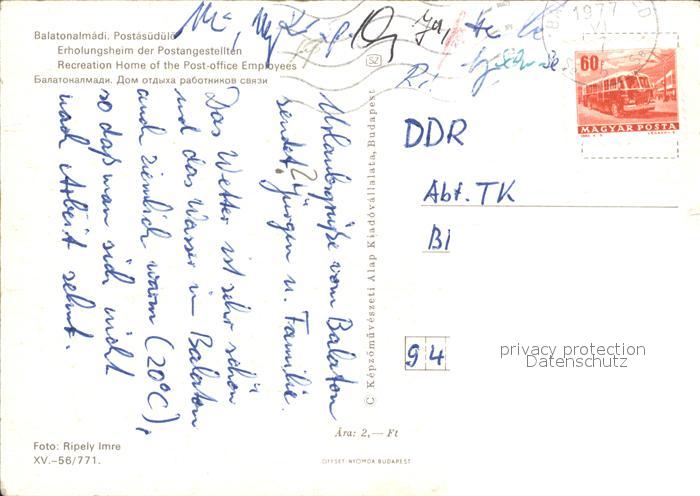 Balatonalmádi. Postásüdülő
Erholungsheim der Postangestellten
Recreation Home of the Post-office Employees
Балатоналмади. Дом отдыха работников связи
Urlaubsgrüße vom Balaton
sendet Jürgen u. Familie.
Das Wetter ist sehr schön
und das Wasser im Balaton
auch ziemlich warm (20°C),
so daß man sich nicht
nach Arbeit sehnt.
Foto: Ripely Imre
XV.–56/771.
© Képzőművészeti Alap Kiadóvállalata, Budapest
Ára: 2,— Ft
OFFSET-NYOMDA BUDAPEST
SZ
1977
VI
60f
MAGYAR POSTA
DDR
Abt. TK
Bi
94
privacy protection
Datenschutz